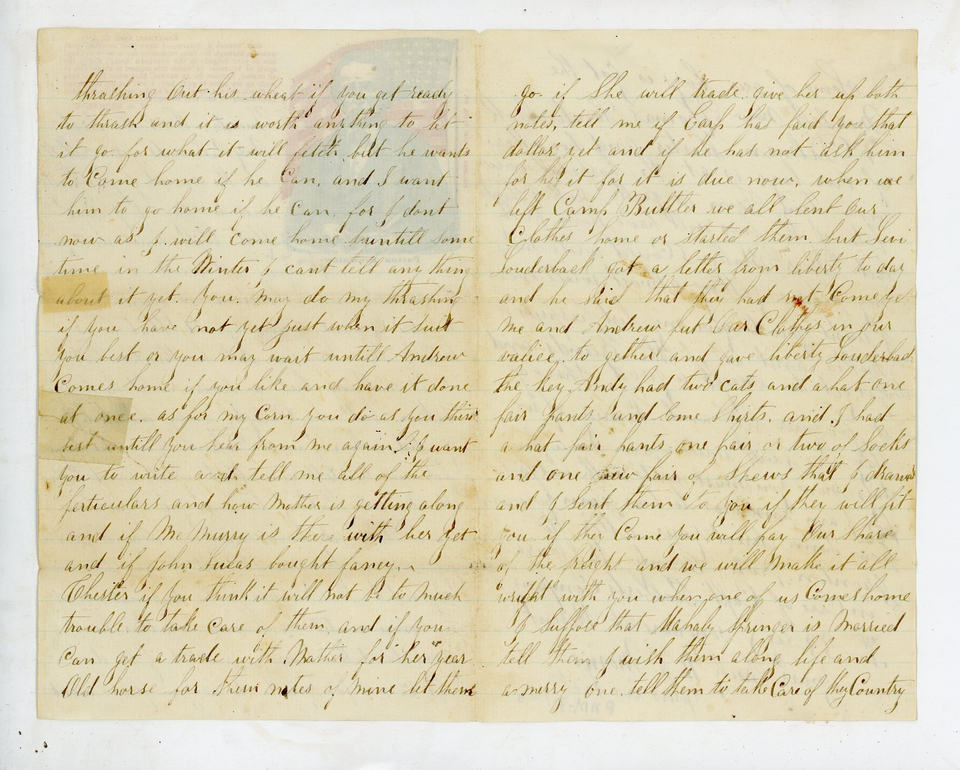 thrashing out his wheat if you get ready
to thrash and it is worth anything to let
it go for what it will fetch but he wants
to Come home if he Can. and I want
him to go home if he Can. for I dont
now as I will come home untill some
time in the Winter I cant tell any thing
about it yet. You. may do my thrashing
if you have not yet just when it suit
you best or you may wait untill Andrew
Comes home if you like and have it done
at once. as for my Corn you do as you think
best untill you hear from me again. I want
you to write and tell me all of the
perticulars and how Mother is getting along
and if McMurry is there with her yet
and if John Lucas bought fancy.
Chester if you think it will not be to much
trouble. to take care of them and if you
Can get a trade with Mother for her year
Old horse for them notes of mine let them
go if She will trade. give her up both
notes, tell me if Earp has paid you that
dollar yet and if he has not ask him
for it for it is due now. when we
left Camp Buttler we all sent Our
Clothes home or started them but Levi
Louderback got a letter from liberty to day
and he said that they had not Come yet
me and Andrew put Our Clothes in our
valice, to gether and gave liberty Louderback
the key. Andy had two coats and a hat one
pair pants and Some Shirts. and I had
a hat pair pants one pair or two of socks
and one new pair of Shews that I drawed
and I Sent them to you if they will fit
you if they Come you will pay Our Share
of the freight and we will make it all
wright with you when one of us Comes home
I Suppose that Mahaly Springer is Married
tell them I wish them along life and
a merry one. tell them to take Care of they Country